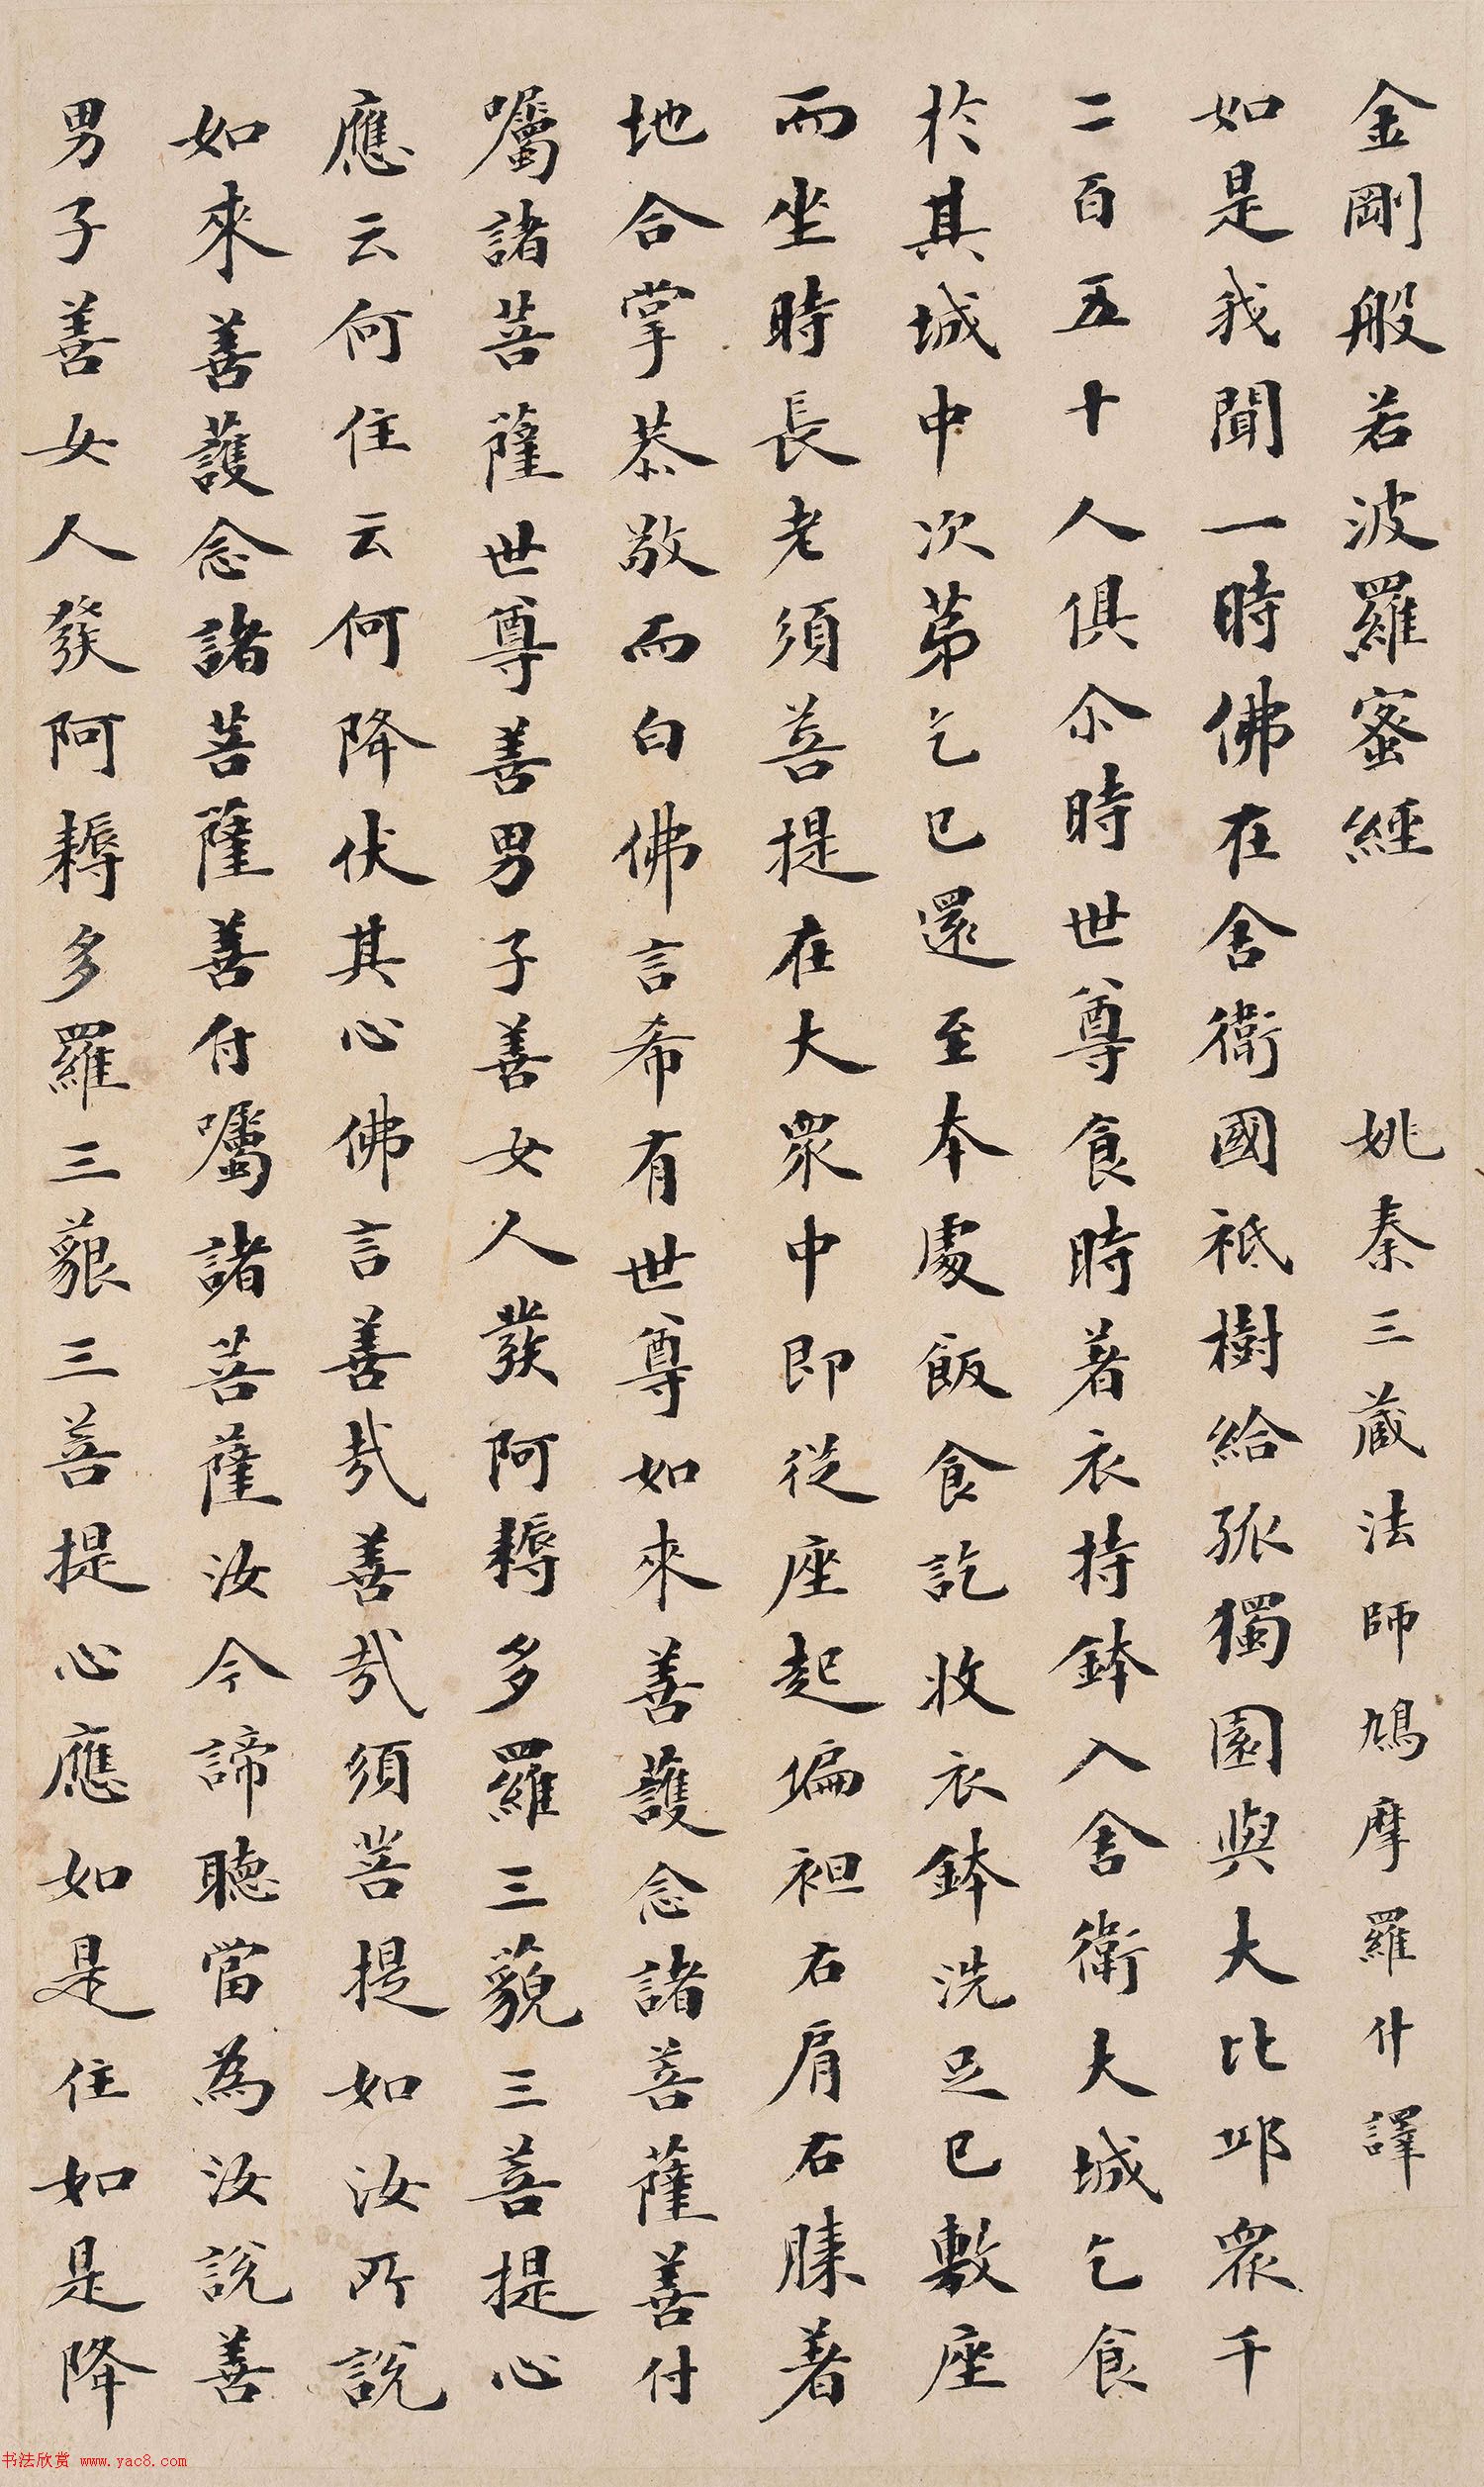 金剛般若波羅蜜經 姚秦三藏法師鳩摩羅什譯
如是我聞一時佛在舍衛國祇樹給孤獨園與大比邱眾千
二百五十人俱尒時世尊食時著衣持鉢入舍衛大城乞食
於其城中次苐乞已還至本處飯食訖收衣鉢洗足已敷座
而坐時長老須菩提在大眾中即從座起偏袒右肩右膝著
地合掌恭敬而白佛言希有世尊如來善護念諸菩薩善付
囑諸菩薩世尊善男子善女人發阿耨多羅三藐三菩提心
應云何住云何降伏其心佛言善哉善哉須菩提如汝所說
如來善護念諸菩薩善付囑諸菩薩汝今諦聽當為汝說善
男子善女人發阿耨多羅三藐三菩提心應如是住如是降
书法欣赏 www.yac8.com